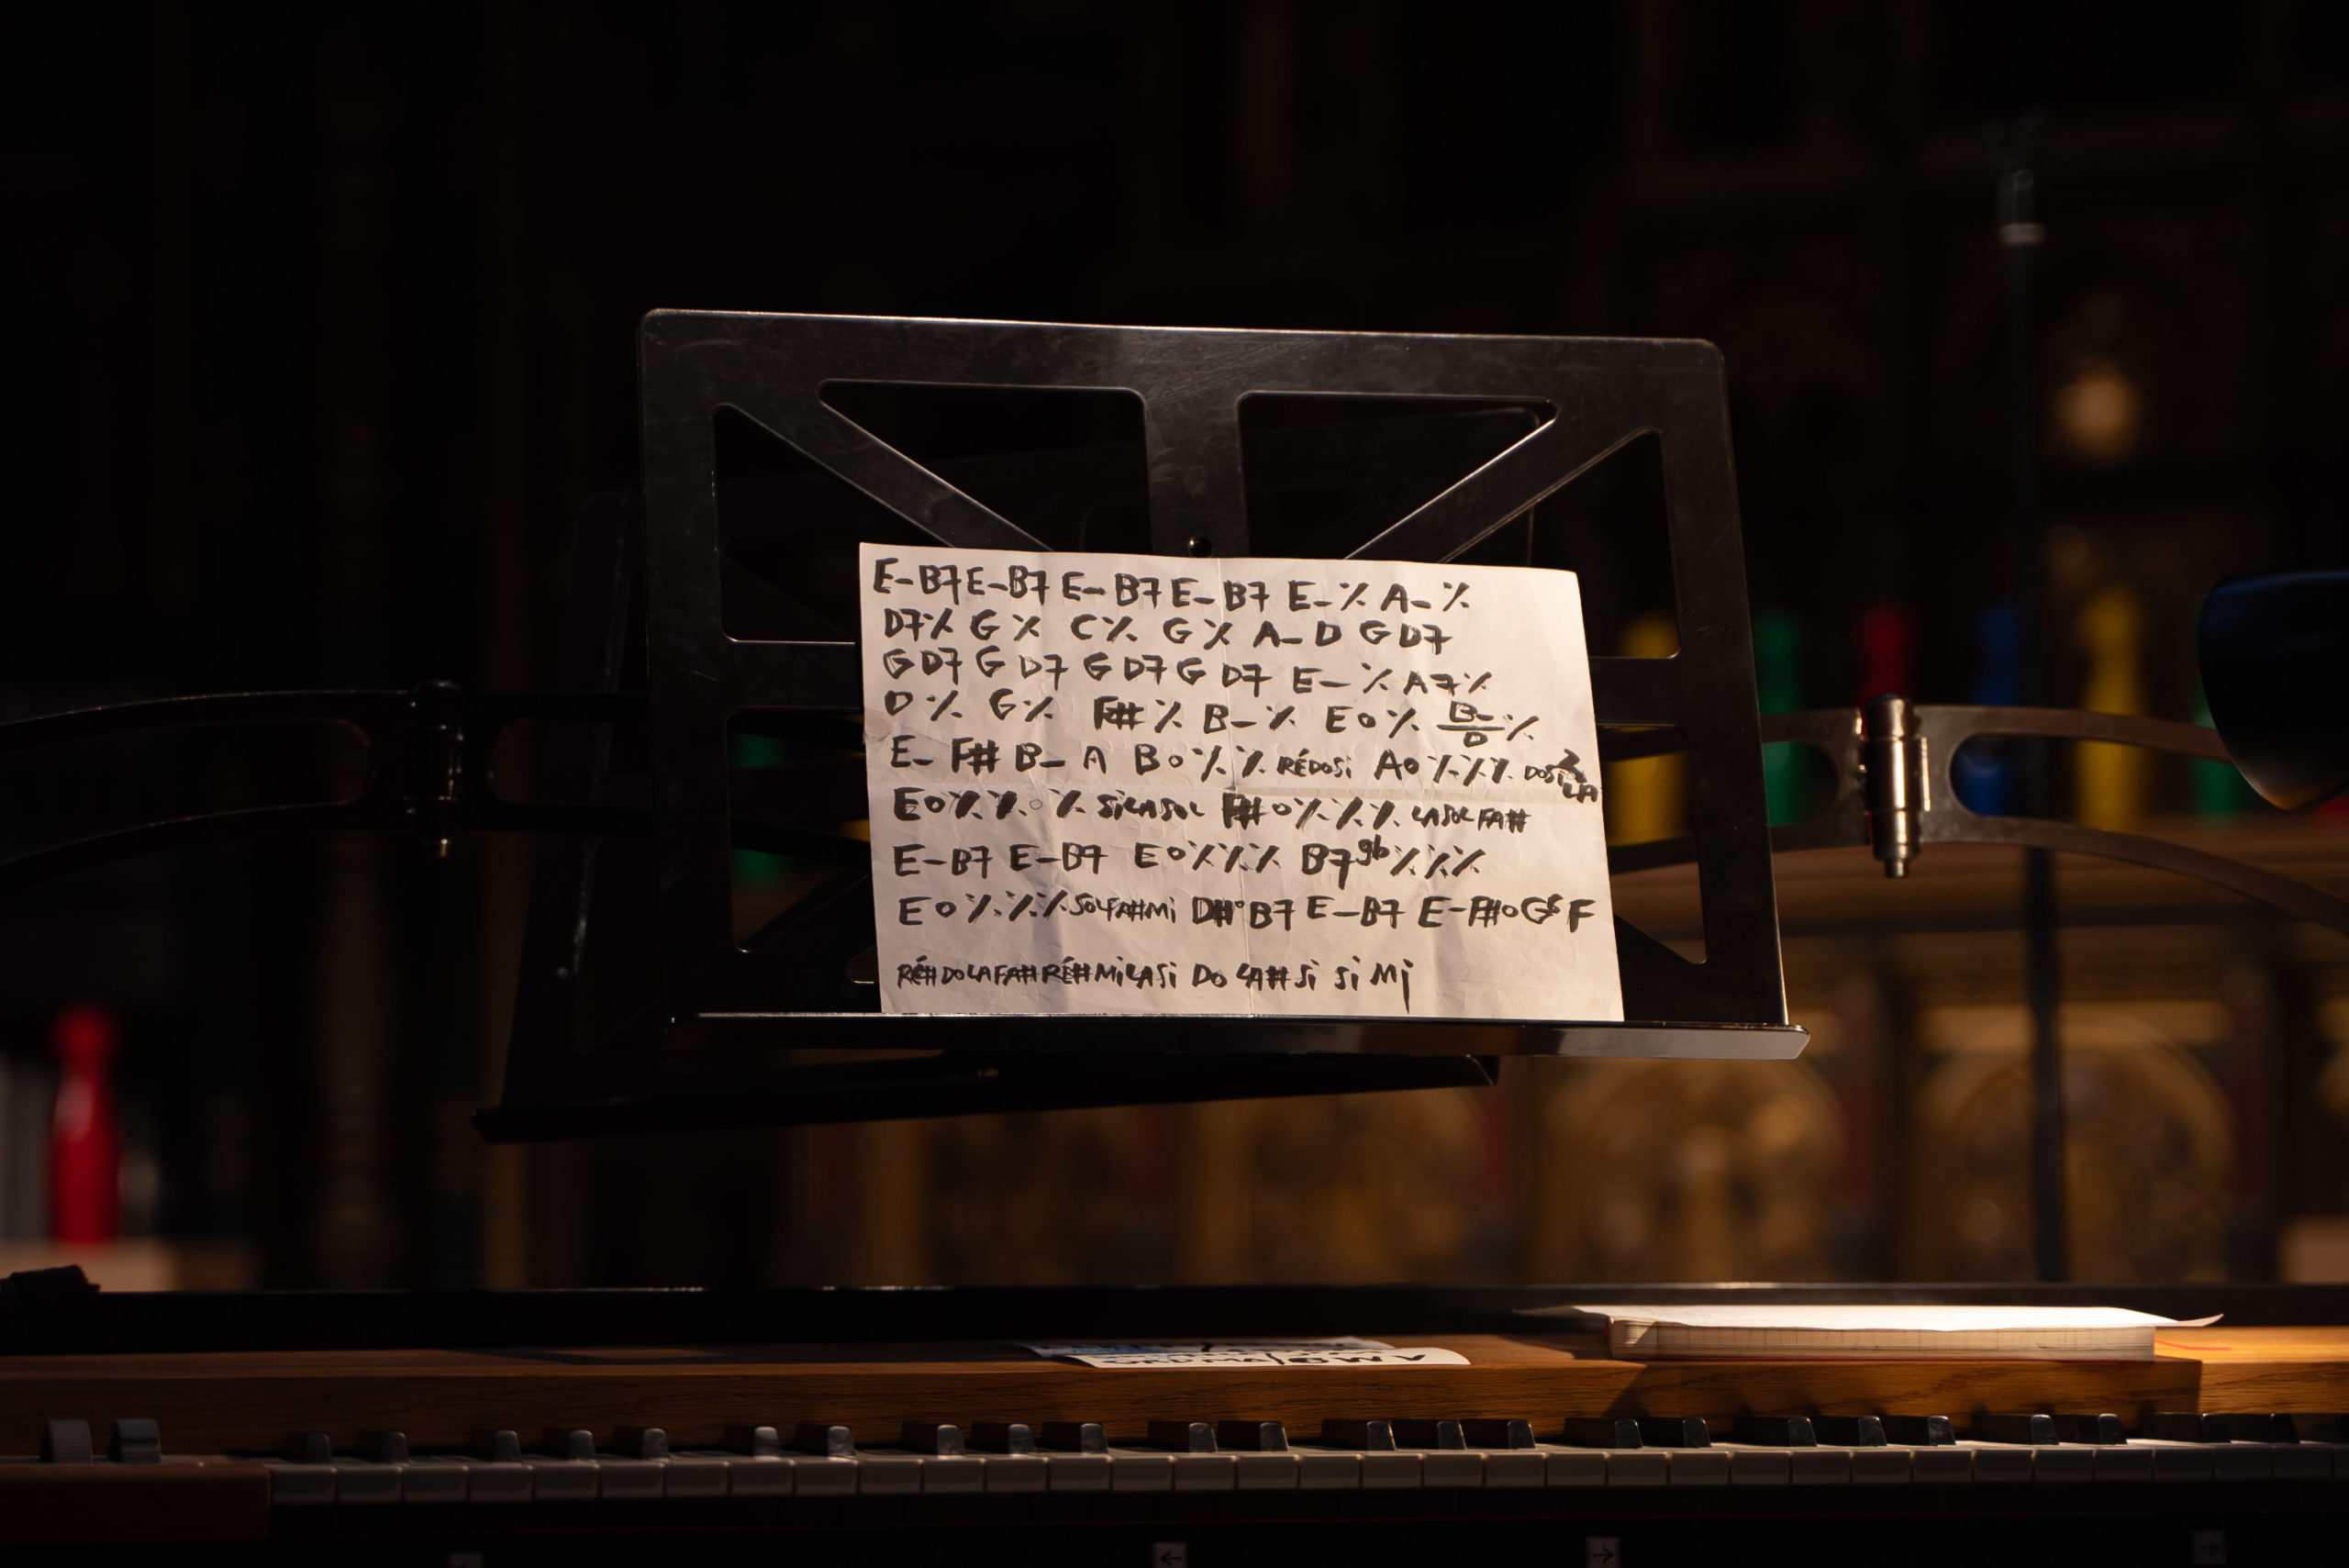 E- B7 E- B7 E- B7 E- B7 E- ٪ A- ٪
D7 ٪ G ٪ C ٪ G ٪ A- D G D7
G D7 G D7 G D7 G D7 E- ٪ A7 ٪
D ٪ G ٪ F# ٪ B- ٪ E o ٪ B-/D ٪
E- F# B- A B o ٪ ٪ RÉDOSi A o ٪ ٪ ٪ DOSiLA
E o ٪ ٪ o ٪ SiLASOL F# o ٪ ٪ ٪ LASOLFA#
E- B7 E- B7 E o ٪ ٪ ٪ B7 9b ٪ ٪ ٪
E o ٪ ٪ ٪ SOLFA#Mi D#° B7 E- B7 E- F#o G F
RÉ# DO LA FA# RÉ# Mi LA Si DO LA# Si Si Mi
← →